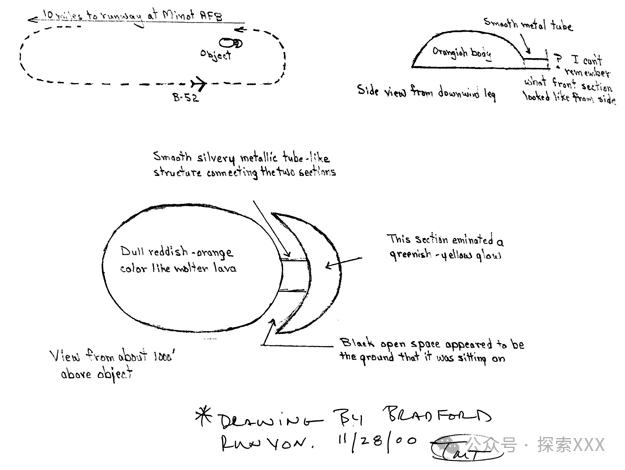 10 miles to runway at Minot AFB
Object
B-52
Smooth metal tube
Orangish body
? I can't
remember
what front section
looked like from side
Side view from downwind leg
Smooth silvery metallic tube-like
structure connecting the two sections
Dull reddish-orange
color like molter lava
This section eminated a
greenish-yellow glow
Black open space appeared to be
the ground that it was sitting on
View from about 1000'
above object
* DRAWING BY BRADFORD
RUNYON. 11/28/00
公众号 · 探索XXX